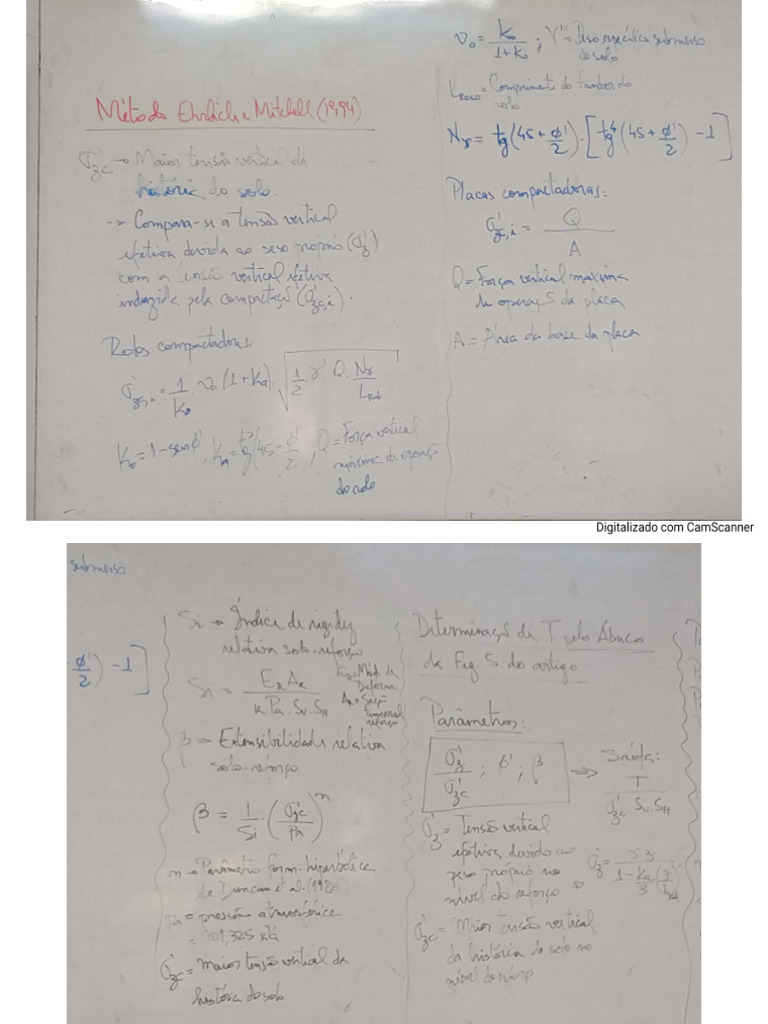 Método Ehrlich e Mitchell (1994)
σ'zc → Maior tensão vertical da
história do solo.
→ Compara-se a tensão vertical
efetiva devida ao peso próprio (σ'z)
com a tensão vertical efetiva
induzida pela compactação (σ'zc,i).
Rolos compactadores:
σ'zc,i = 1/K0 · ν0 (1+Ka) · √(1/2 · γ' · Q · Nγ/Lrolo)
K0 = 1 - senϕ', Ka = tg²(45 - ϕ'/2), Q = Força vertical
máxima de operação
do rolo
ν0 = K0/(1+K0) ; γ' = Peso específico submerso
do solo
Lrolo = Comprimento do tambor do
rolo
Nγ = tg(45 + ϕ'/2) · [tg⁴(45 + ϕ'/2) - 1]
Placas compactadoras:
σ'zc,i = Q/A
Q = Força vertical máxima
de operação da placa
A = Área da base da placa
Digitalizado com CamScanner
submerso
ϕ'/2) - 1]
Si → Índice de rigidez
relativa solo-reforço
Si = ER AR / (k · Pa · Sv · SH)
ER = Mód. de
Deform.
AR = Seção
transversal
reforço
β → Extensibilidade relativa
solo-reforço
β = 1/Si · (σ'zc/Pa)ⁿ
n → Parâmetro form. hiperbólica
de Duncan et al. (1980
Pa = pressão atmosférica
= 101,325 kPa
σ'zc = maior tensão vertical da
história do solo
Determinação de T pelo Ábaco
da Fig. 5 do artigo
Parâmetros:
σ'z/σ'zc ; ϕ' ; β ⇒ Saída:
T/(σ'zc · Sv · SH)
σ'z = Tensão vertical
efetiva devido ao
peso próprio no
nível do reforço ⇒ σ'z = γ·z / (1 - Ka/3 (z/
σ'zc = Maior tensão vertical
da história do solo no
nível do reforço